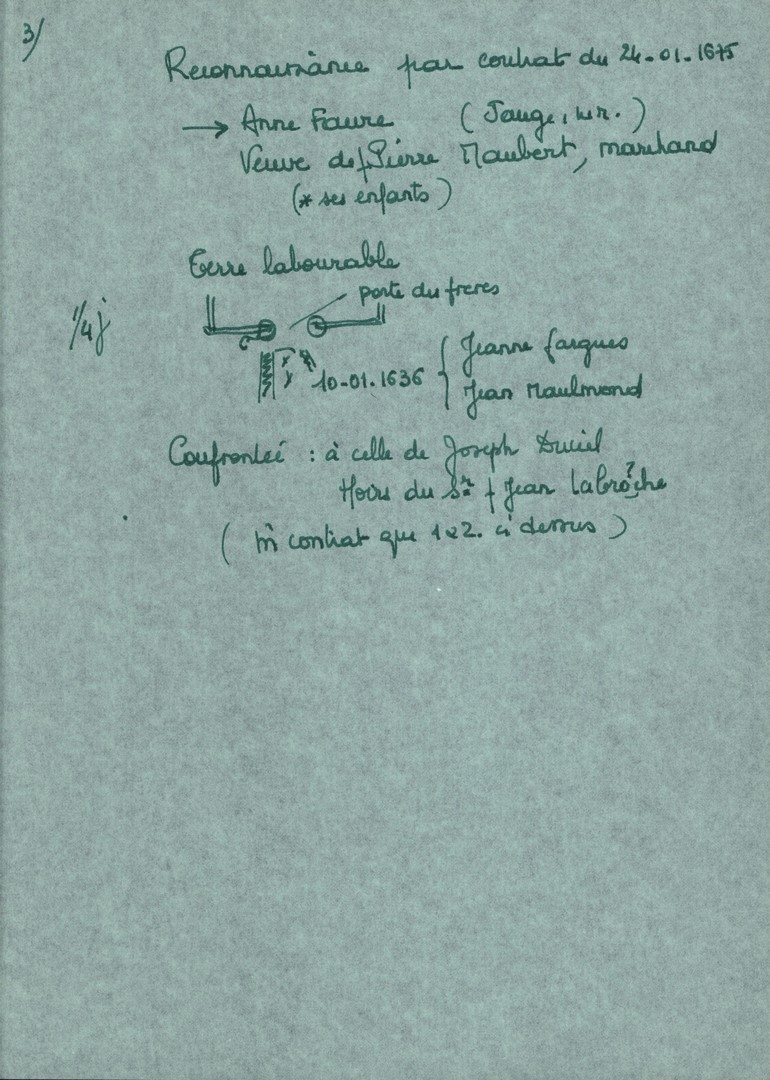 3/
Reconnaissance par contrat du 24-01.1675
→ Anne Faure ( Jauge, nr. )
Veuve de f Pierre Maubert, marchand
(* ses enfants )
Terre labourable
porte du freres
1/4 j
10-01.1636 { Jeanne fargues
Jean Maulmond
Confronté : à celle de Joseph
Hoirs du Sr f Jean Labroche
?
( m̂ contrat que 1 e 2. ci dessus )